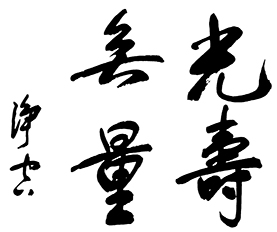 光壽
無量
淨空